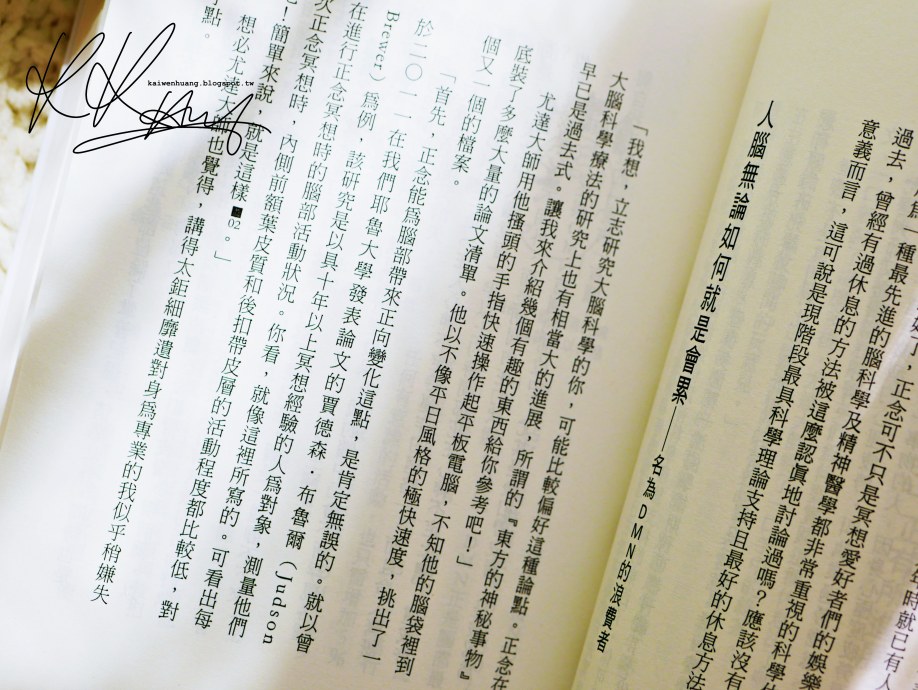 時就已有人
了，正念可不只是冥想愛好者們的娛樂
一種最先進的腦科學及精神醫學都非常重視的科學
過去，曾經有過休息的方法被這麼認真地討論過嗎？應該沒有
意義而言，這可說是現階段最具科學理論支持且最好的休息方法
人腦無論如何就是會累——名為DMN的浪費者
「我想，立志研究大腦科學的你，可能比較偏好這種論點。正念在
大腦科學療法的研究上也有相當大的進展，所謂的『東方的神秘事物』
早已是過去式。讓我來介紹幾個有趣的東西給你參考吧！」
尤達大師用他搔頭的手指快速操作起平板電腦，不知他的腦袋裡到
底裝了多麼大量的論文清單。他以不像平日風格的極快速度，挑出了一
個又一個的檔案。
「首先，正念能為腦部帶來正向變化這點，是肯定無誤的。就以曾
於二〇一一在我們耶魯大學發表論文的賈德森．布魯爾（Judson
Brewer）為例，該研究是以具十年以上冥想經驗的人為對象，測量他們
在進行正念冥想時的腦部活動狀況。你看，就像這裡所寫的。可看出每
次正念冥想時，內側前額葉皮質和後扣帶皮層的活動程度都比較低，對
吧！簡單來說，就是這樣 02。」
想必尤達大師也覺得，講得太鉅細靡遺對身為專業的我似乎稍嫌失
點。
kaiwenhuang.blogspot.tw